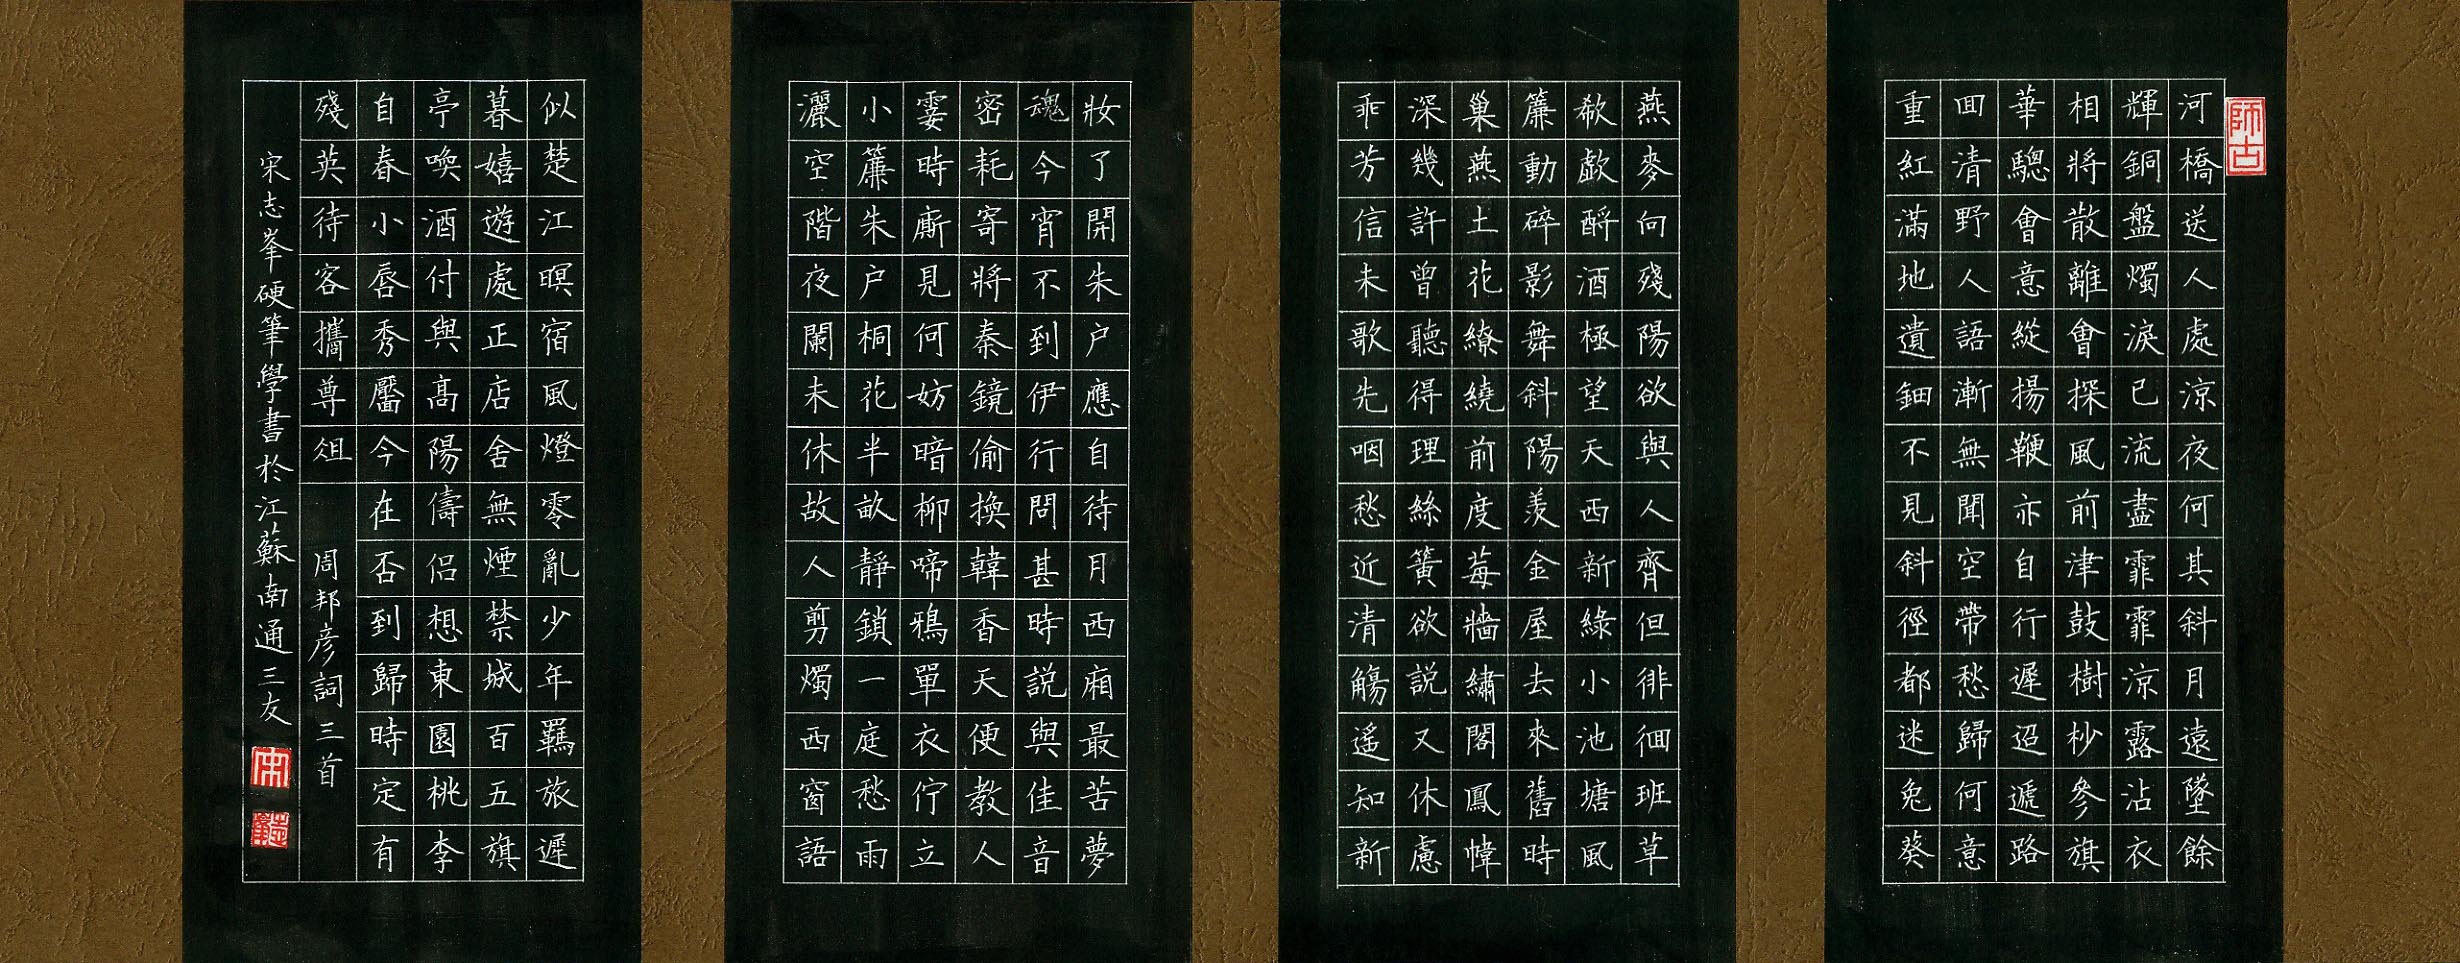 師古
河橋送人處涼夜何其斜月遠墜餘
輝銅盤燭淚已流盡霏霏涼露沾衣
相將散離會探風前津鼓樹杪參旗
華驄會意縱揚鞭亦自行遲迢遞路
回清野人語漸無聞空帶愁歸何意
重紅滿地遺鈿不見斜徑都迷兔葵
燕麥向殘陽欲與人齊但徘徊班草
欷歔酹酒極望天西新綠小池塘風
簾動碎影舞斜陽羨金屋去來舊時
巢燕土花繚繞前度莓牆繡閣鳳幃
深幾許曾聽得理絲簧欲説又休慮
乖芳信未歌先咽愁近清觴遥知新
妝了開朱户應自待月西廂最苦夢
魂今宵不到伊行問甚時説與佳音
密耗寄將秦鏡偷換韓香天便教人
霎時廝見何妨暗柳啼鴉單衣佇立
小簾朱户桐花半畝靜鎖一庭愁雨
灑空階夜闌未休故人剪燭西窗語
似楚江暝宿風燈零亂少年羈旅遲
暮嬉遊處正店舍無煙禁城百五旗
亭喚酒付與高陽儔侣想東園桃李
自春小唇秀靨今在否到歸時定有
殘英待客攜尊俎
周邦彦詞三首
宋志峯硬筆學書於江蘇南通三友
宋
志峯